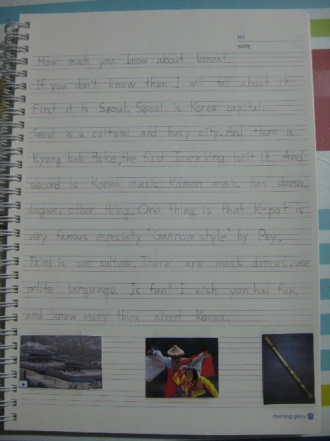 NO
DATE
How much you know about korea?
If you don't know then I will tell about it.
First it is Seoul. Seoul is Korea capital.
Seoul is a cultural and busy city. And there is
Kyung bok the first king it. And
second is Korea music. Korean music has danso,
other thing. One thing is that K-pop is
very famous especially "Gannam style" by Psy.
Third is our culture. There are mask dances, use
polite language. Is fun? I wish you had fun,
and know many thing about Korea.
morning glory